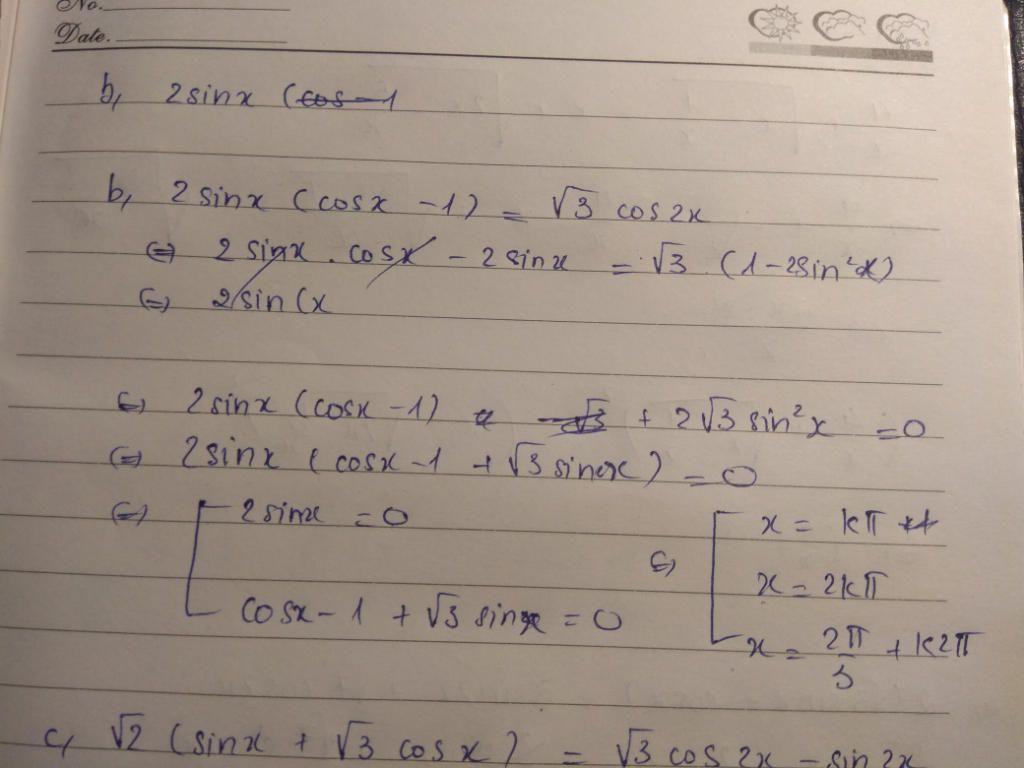 No.
Date.
b, 2sinx (cos-1
b, 2sinx (cosx -1) = √3 cos2x
⇔ 2sinx . cosx - 2sinx = √3 . (1-2sin²x)
⇔ 2sin(x
⇔ 2sinx (cosx -1) -√3 + 2√3 sin²x = 0
⇔ 2sinx (cosx -1 + √3 sinx) = 0
⇔ [ 2sinx = 0 ⇔ [ x = kπ
x = 2kπ
cosx - 1 + √3 sinx = 0
x = 2π/3 + k2π
c, √2 (sinx + √3 cosx) = √3 cos2x - sin2x